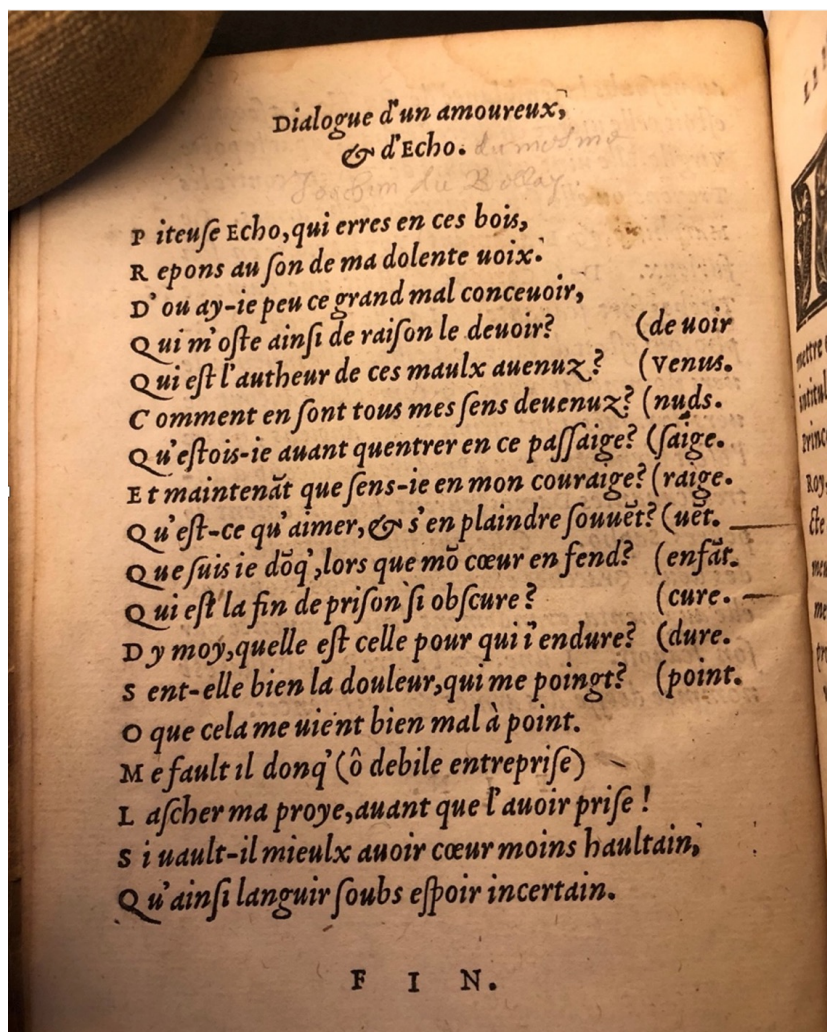 Dialogue d'un amoureux,
& d'Echo. du mesme
Joachim du Bellay.
P iteuſe Echo, qui erres en ces bois,
R epons au ſon de ma dolente uoix.
D'ou ay-ie peu ce grand mal conceuoir,
Qui m'oſte ainſi de raiſon le deuoir? (de uoir
Qui eſt l'autheur de ces maulx auenuz? (venus.
C omment en ſont tous mes ſens deuenuz? (nuds.
Qu'eſtois-ie auant quentrer en ce paſſaige? (ſaige.
Et maintenãt que ſens-ie en mon couraige? (raige.
Qu'eſt-ce qu'aimer, & s'en plaindre ſouuẽt? (uẽt.
Que ſuis ie dõq', lors que mõ cœur en fend? (enfãt.
Qui eſt la fin de priſon ſi obſcure? (cure.
D y moy, quelle eſt celle pour qui i'endure? (dure.
S ent-elle bien la douleur, qui me poingt? (point.
O que cela me uient bien mal à point.
M e fault il donq' (ô debile entrepriſe)
L aſcher ma proye, auant que l'auoir priſe !
S i uault-il mieulx auoir cœur moins haultain,
Qu'ainſi languir ſoubs eſpoir incertain.
F I N.
LI
mettre
intitul
Princ
Roy,